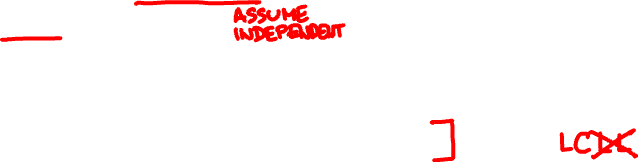 ASSUME
INDEPENDENT
LC